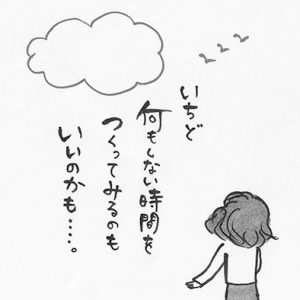 いちど
何もしない時間を
つくってみるのも
いいのかも……。